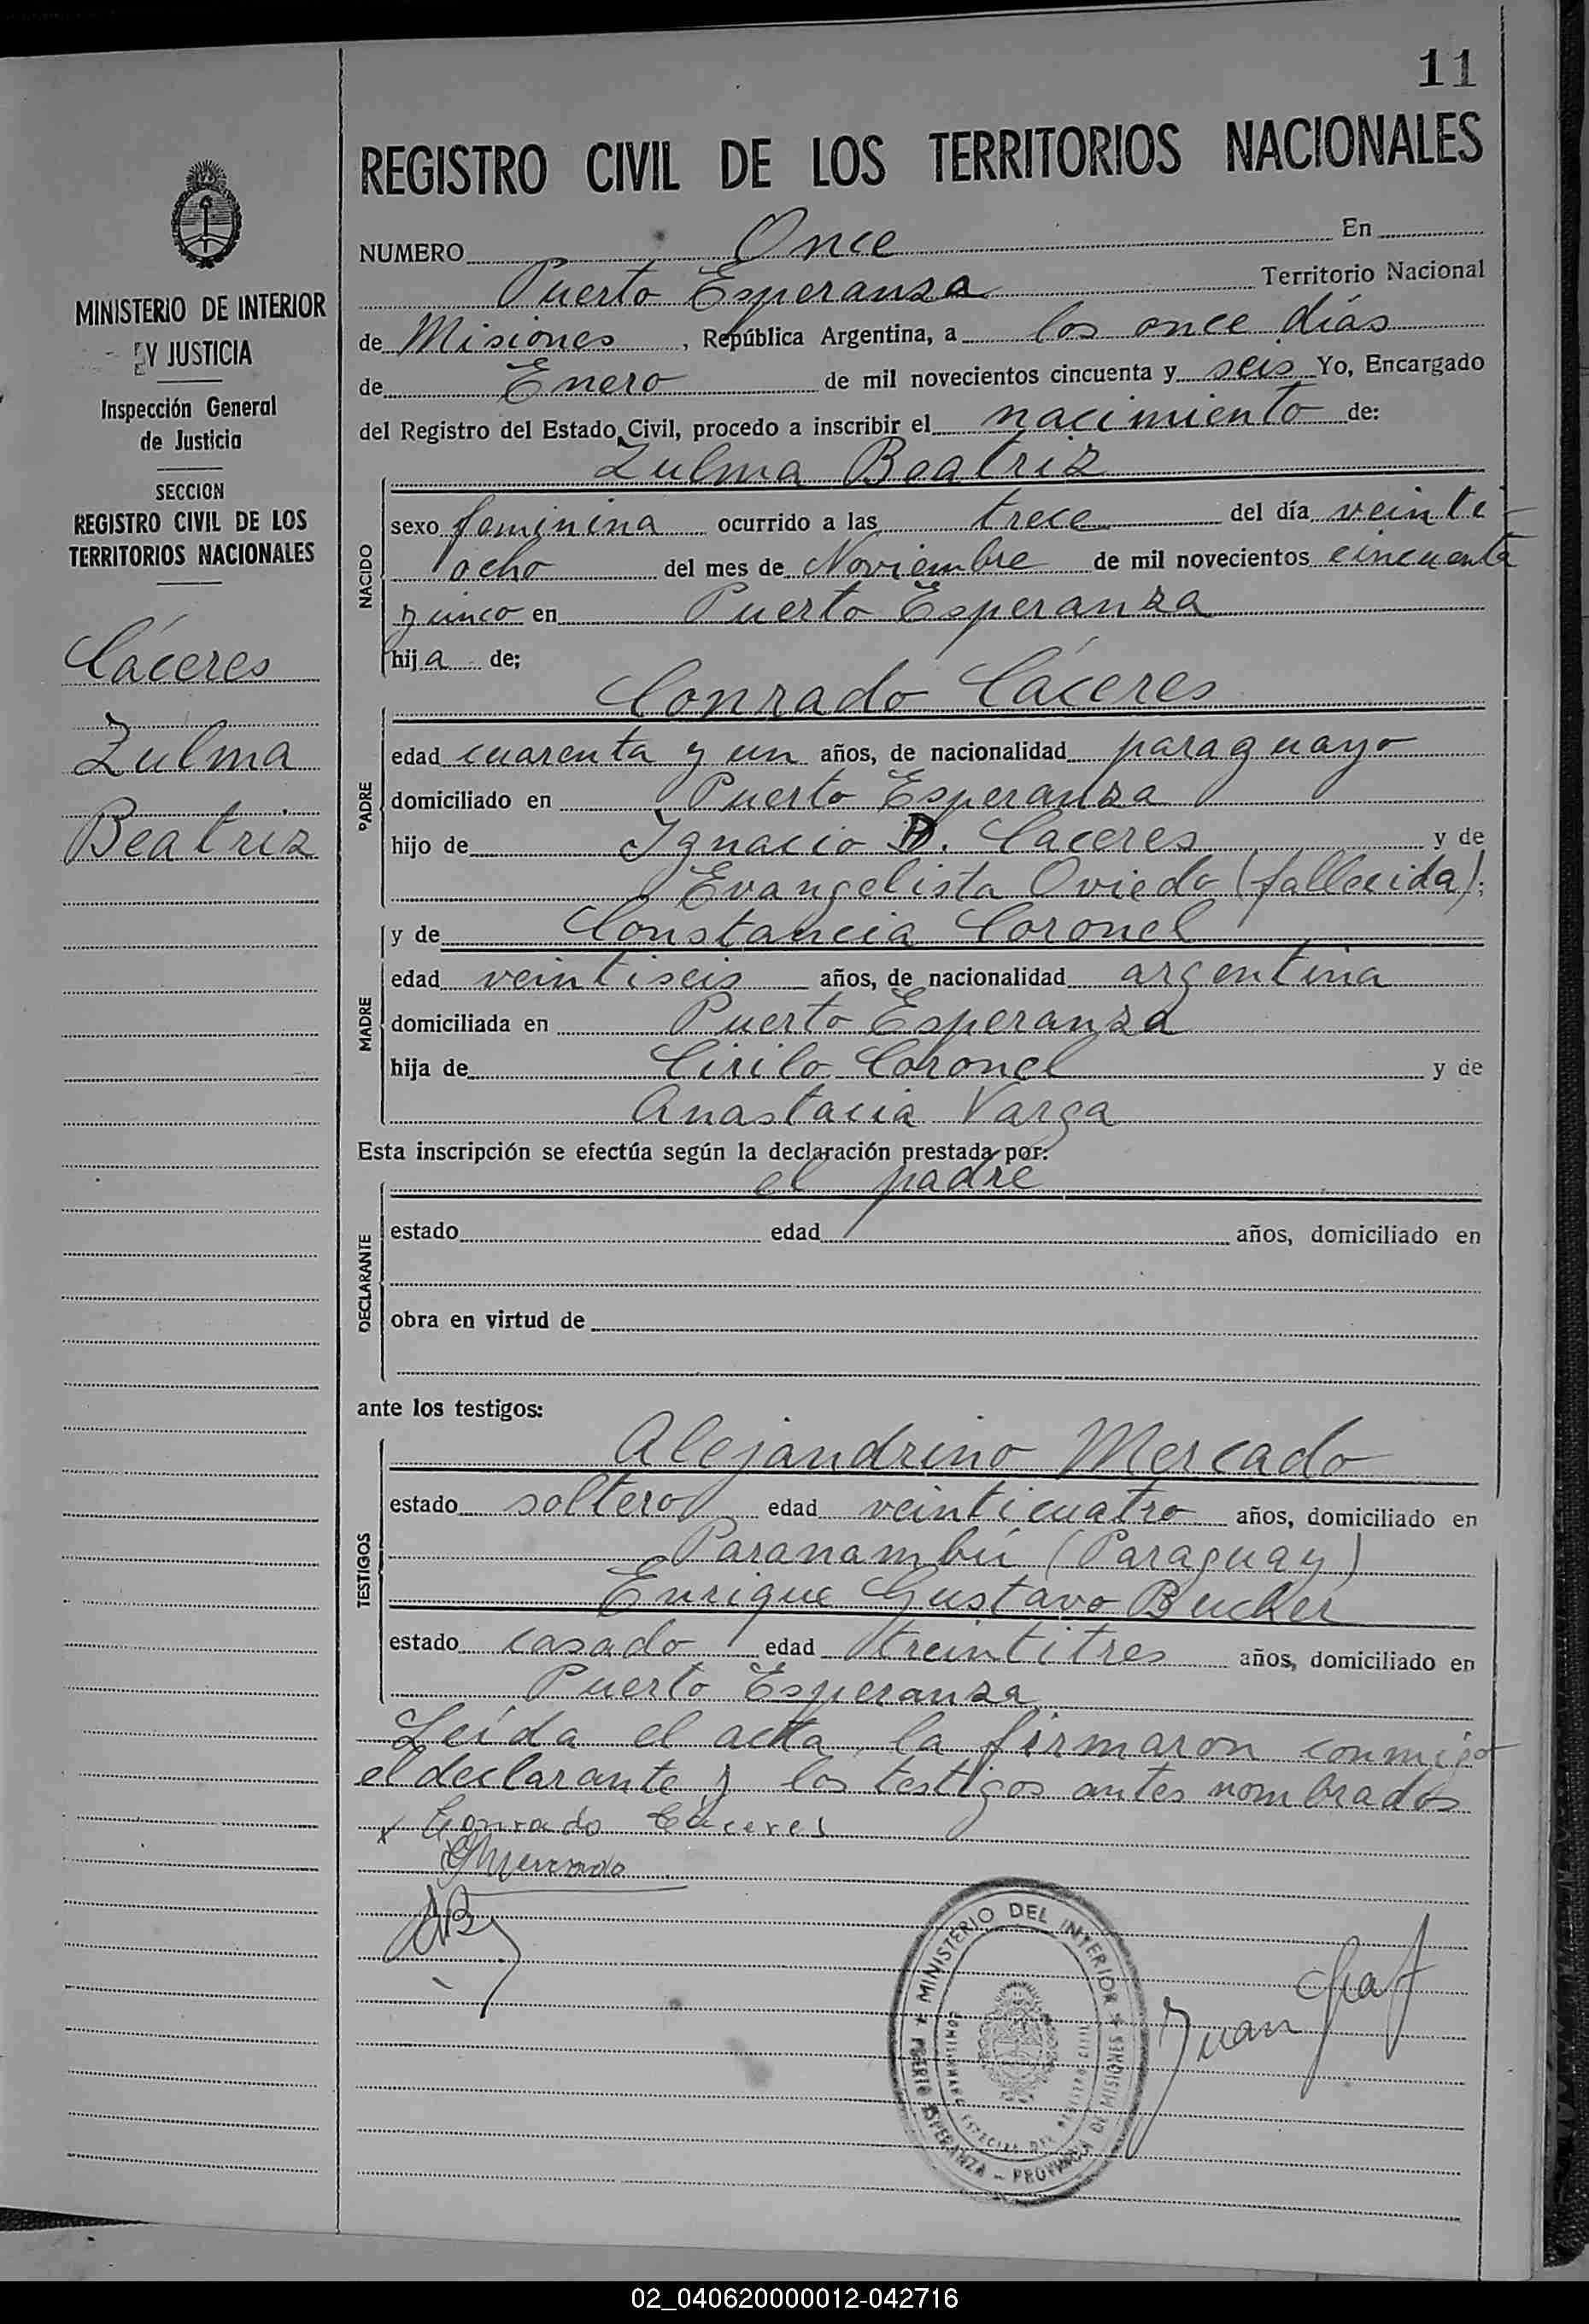 11
REGISTRO CIVIL DE LOS TERRITORIOS NACIONALES
MINISTERIO DE INTERIOR
Y JUSTICIA
Inspección General
de Justicia
SECCION
REGISTRO CIVIL DE LOS
TERRITORIOS NACIONALES
Cáceres
Zulma
Beatriz
NUMERO Once En
Puerto Esperanza Territorio Nacional
de Misiones, República Argentina, a los once días
de Enero de mil novecientos cincuenta y seis Yo, Encargado
del Registro del Estado Civil, procedo a inscribir el nacimiento de:
Zulma Beatriz
NACIDO
sexo feminina ocurrido a las trece del día veinti-
ocho del mes de Noviembre de mil novecientos cincuenta
y cinco en Puerto Esperanza
hija de;
Conrado Cáceres
PADRE
edad cuarenta y un años, de nacionalidad paraguayo
domiciliado en Puerto Esperanza
hijo de Ignacio D. Caceres y de
Evangelista Oviedo (fallecida);
y de Constancia Coronel
MADRE
edad veintiseis años, de nacionalidad argentina
domiciliada en Puerto Esperanza
hija de Cirilo Coronel y de
Anastacia Varga
Esta inscripción se efectúa según la declaración prestada por:
el padre
DECLARANTE
estado edad años, domiciliado en
obra en virtud de
ante los testigos:
Alejandrino Mercado
TESTIGOS
estado soltero edad veinticuatro años, domiciliado en
Paranambú (Paraguay)
Enrique Gustavo Bucher
estado casado edad treintitres años, domiciliado en
Puerto Esperanza
Leida el acta, la firmaron conmigo
el declarante y los testigos antes nombrados
x Conrado Cáceres
Mercado
MINISTERIO DEL INTERIOR
PUERTO ESPERANZA - PROVINCIA DE MISIONES
Juan
02_040620000012-042716